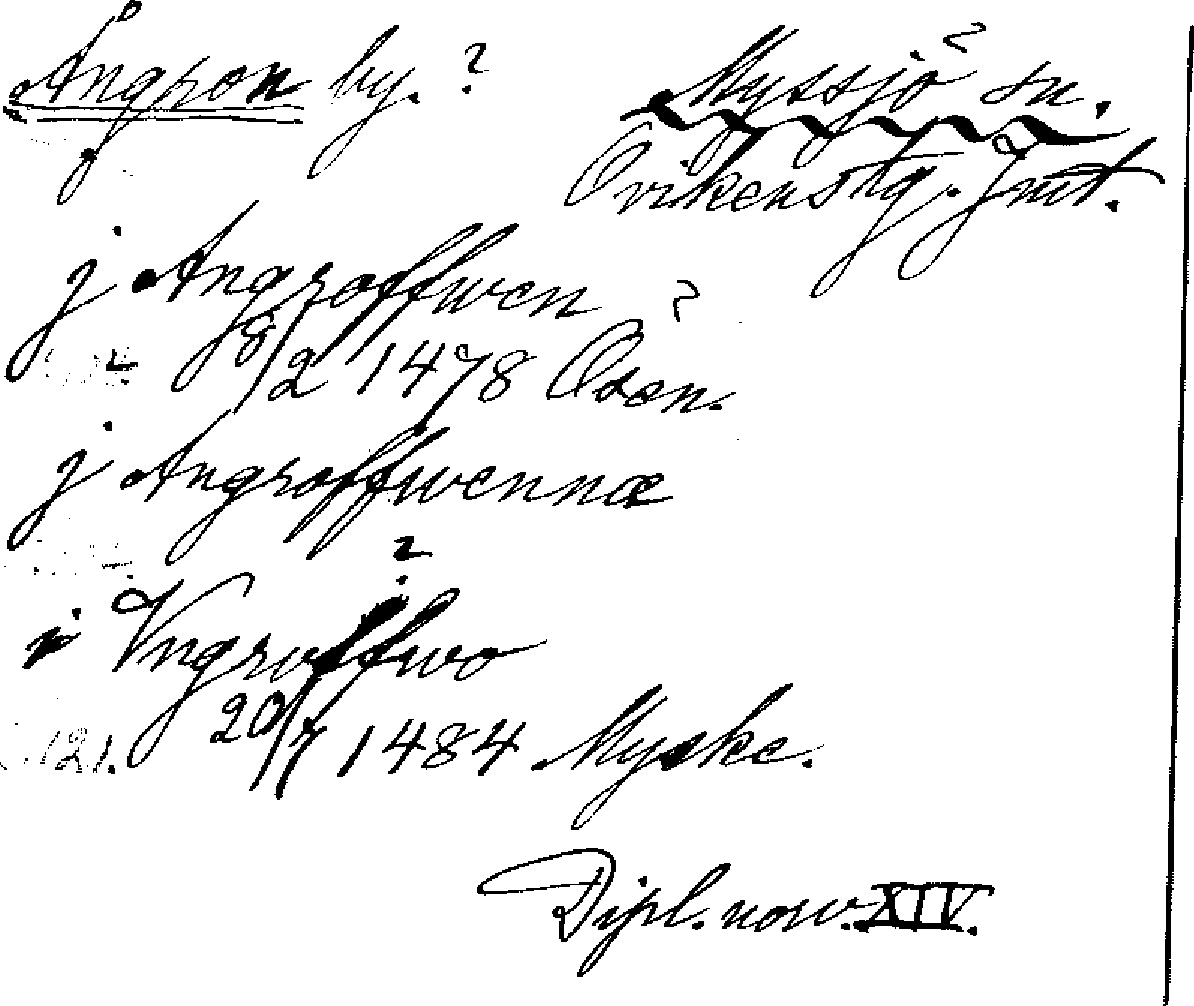 Ångron by. ?
Myssjö ? sn.
Ovikenstg. Jmt.
j Angroffwen
8/2 1478 Osen. ?
j Angroffwennæ
i Vngroffwo ?
121. 20/7 1484 Myske.
Dipl. norv. XIV.